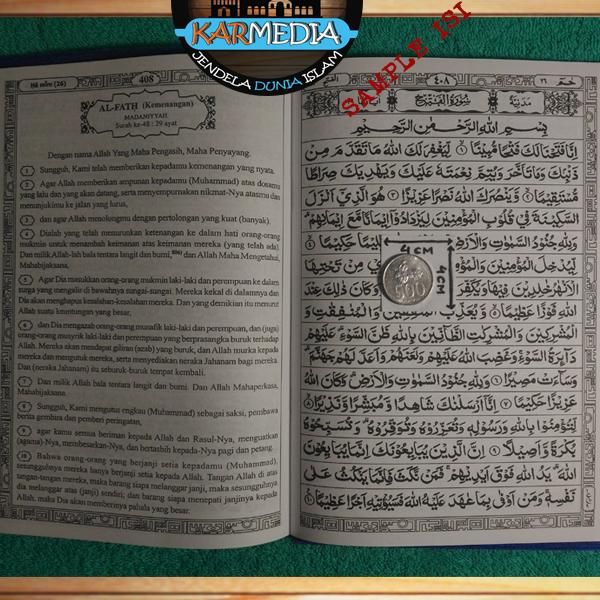 KARMEDIA
JENDELA DUNIA ISLAM
SAMPLE ISI
Hâ mîm (26)
408
AL-FATH (Kemenangan)
MADANIYYAH
Surah ke-48 : 29 ayat
Dengan nama Allah Yang Maha Pengasih, Maha Penyayang.
1 Sungguh, Kami telah memberikan kepadamu kemenangan yang nyata.
2 Agar Allah memberikan ampunan kepadamu (Muhammad) atas dosamu
yang lalu dan yang akan datang, serta menyempurnakan nikmat-Nya atasmu dan
menunjukimu ke jalan yang lurus,
3 dan agar Allah menolongmu dengan pertolongan yang kuat (banyak).
4 Dialah yang telah menurunkan ketenangan ke dalam hati orang-orang
mukmin untuk menambah keimanan atas keimanan mereka (yang telah ada).
Dan milik Allah-lah bala tentara langit dan bumi, dan Allah Maha Mengetahui,
Mahabijaksana,
5 Agar Dia masukkan orang-orang mukmin laki-laki dan perempuan ke dalam
surga yang mengalir di bawahnya sungai-sungai. Mereka kekal di dalamnya dan
Dia akan menghapus kesalahan-kesalahan mereka. Dan yang demikian itu menurut
Allah suatu keuntungan yang besar,
6 dan Dia mengazab orang-orang munafik laki-laki dan perempuan, dan (juga)
orang-orang musyrik laki-laki dan perempuan yang berprasangka buruk terhadap
Allah. Mereka akan mendapat giliran (azab) yang buruk, dan Allah murka kepada
mereka dan mengutuk mereka, serta menyediakan neraka Jahanam bagi mereka.
Dan (neraka Jahanam) itu seburuk-buruk tempat kembali.
7 Dan milik Allah bala tentara langit dan bumi. Dan Allah Mahaperkasa,
Mahabijaksana.
8 Sungguh, Kami mengutus engkau (Muhammad) sebagai saksi, pembawa
berita gembira dan pemberi peringatan,
9 agar kamu semua beriman kepada Allah dan Rasul-Nya, menguatkan
(agama)-Nya, membesarkan-Nya, dan bertasbih kepada-Nya pagi dan petang.
10 Bahwa orang-orang yang berjanji setia kepadamu (Muhammad),
sesungguhnya mereka hanya berjanji setia kepada Allah. Tangan Allah di atas
tangan-tangan mereka, maka barang siapa melanggar janji, maka sesungguhnya
dia melanggar atas (janji) sendiri; dan barang siapa menepati janjinya kepada
Allah, maka Dia akan memberinya pahala yang besar.
٤٠٨
حم ٢٦
مدنية
سورة الفتح
بِسْمِ اللهِ الرَّحْمٰنِ الرَّحِيْمِ
اِنَّا فَتَحْنَا لَكَ فَتْحًا مُّبِيْنًا ۙ ١ لِّيَغْفِرَ لَكَ اللهُ مَا تَقَدَّمَ مِنْ
ذَنْۢبِكَ وَمَا تَاَخَّرَ وَيُتِمَّ نِعْمَتَهٗ عَلَيْكَ وَيَهْدِيَكَ صِرَاطًا
مُّسْتَقِيْمًا ۙ ٢ وَّيَنْصُرَكَ اللهُ نَصْرًا عَزِيْزًا ٣ هُوَ الَّذِيْٓ اَنْزَلَ
السَّكِيْنَةَ فِيْ قُلُوْبِ الْمُؤْمِنِيْنَ لِيَزْدَادُوْٓا اِيْمَانًا مَّعَ اِيْمَانِهِمْ ۗ
وَلِلّٰهِ جُنُوْدُ السَّمٰوٰتِ وَالْاَرْضِ حَكِيْمًا ۙ ٤
لِّيُدْخِلَ الْمُؤْمِنِيْنَ مِنْ تَحْتِهَا
الْاَنْهٰرُ خٰلِدِيْنَ فِيْهَا وَيُكَفِّرَ وَكَانَ ذٰلِكَ عِنْدَ
اللهِ فَوْزًا عَظِيْمًا ۙ ٥ وَّيُعَذِّبَ وَالْمُنٰفِقٰتِ وَ
الْمُشْرِكِيْنَ وَالْمُشْرِكٰتِ الظَّاۤنِّيْنَ بِاللهِ ظَنَّ السَّوْءِ ۗ عَلَيْهِمْ
دَاۤىِٕرَةُ السَّوْءِ ۚ وَغَضِبَ اللهُ عَلَيْهِمْ وَلَعَنَهُمْ وَاَعَدَّ لَهُمْ جَهَنَّمَ ۗ
وَسَاۤءَتْ مَصِيْرًا ٦ وَلِلّٰهِ جُنُوْدُ السَّمٰوٰتِ وَالْاَرْضِ ۗ وَكَانَ اللهُ
عَزِيْزًا حَكِيْمًا ٧ اِنَّآ اَرْسَلْنٰكَ شَاهِدًا وَّمُبَشِّرًا وَّنَذِيْرًا ۙ ٨
لِّتُؤْمِنُوْا بِاللهِ وَرَسُوْلِهٖ وَتُعَزِّرُوْهُ وَتُوَقِّرُوْهُ ۗ وَتُسَبِّحُوْهُ
بُكْرَةً وَّاَصِيْلًا ٩ اِنَّ الَّذِيْنَ يُبَايِعُوْنَكَ اِنَّمَا يُبَايِعُوْنَ
اللهَ ۗ يَدُ اللهِ فَوْقَ اَيْدِيْهِمْ ۚ فَمَنْ نَّكَثَ فَاِنَّمَا يَنْكُثُ عَلٰى
نَفْسِهٖ ۚ وَمَنْ اَوْفٰى بِمَا عٰهَدَ عَلَيْهُ اللهَ فَسَيُؤْتِيْهِ اَجْرًا عَظِيْمًا ١٠
4 CM
4 CM
500